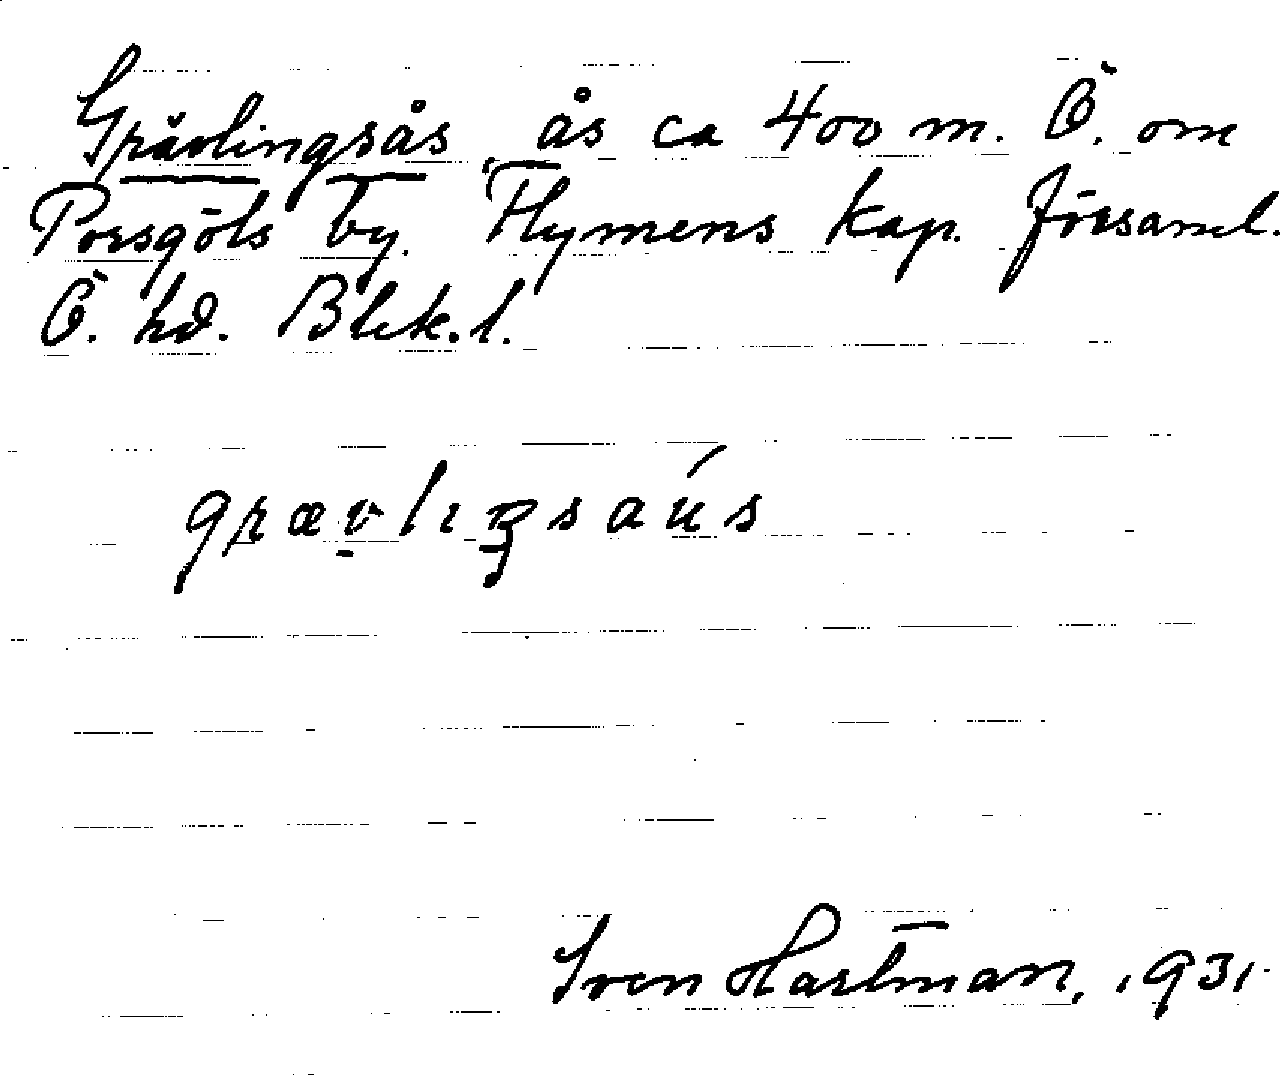 Grävlingsås, ås ca 400 m. Ö. om
Porsgöls by. Flymens kap. församl.
Ö. hd. Blek. l.
grævlıŋsaús
Sven Hartman, 1931.